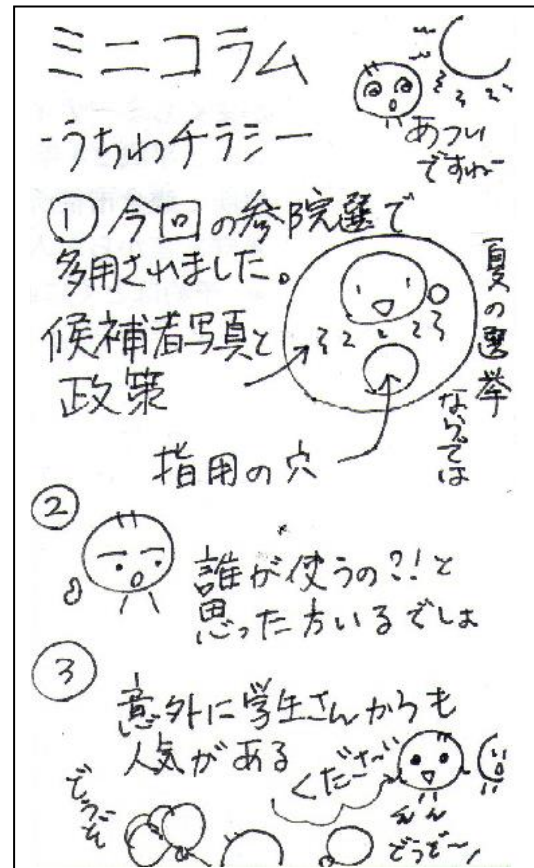 ミニコラム
-うちわチラシー
あつい
ですねー
①今回の参院選で
多用されました。
候補者写真と
政策
夏の選挙
ならでは
指用の穴
②
誰が使うの?!と
思った方いるでしょ
③
意外に学生さんからも
人気がある
くださ~い
どうぞ
どうぞ~